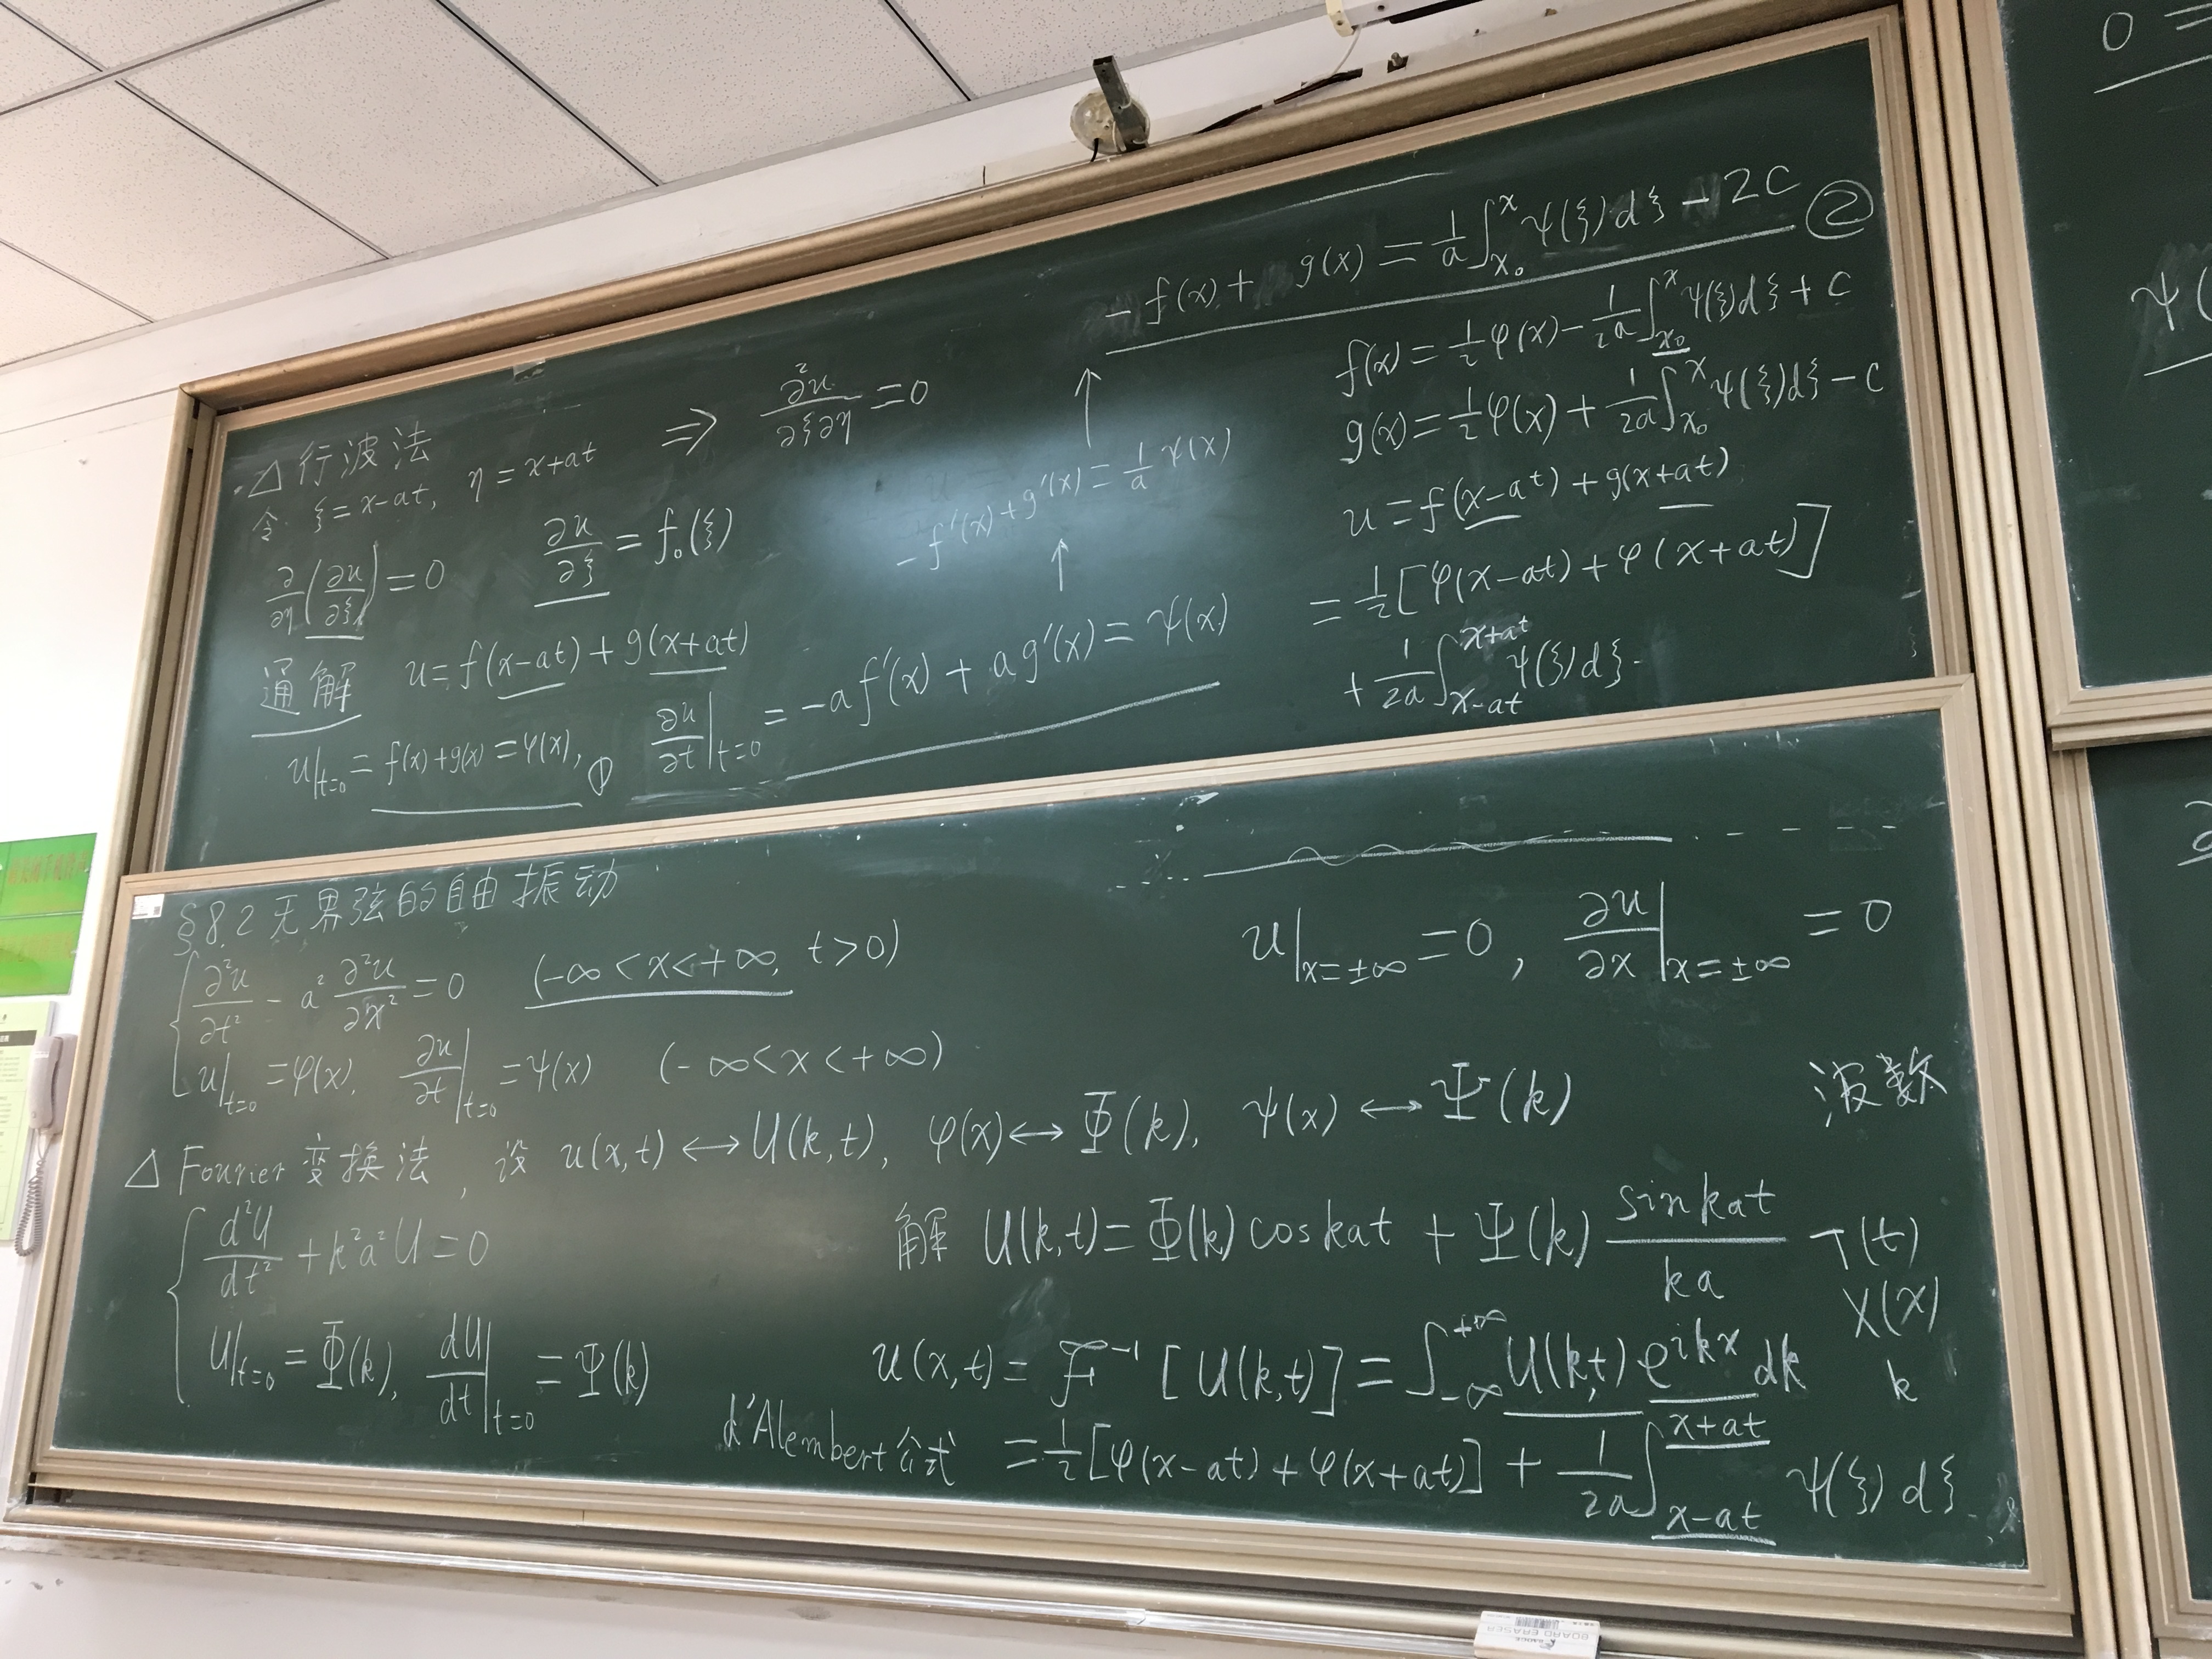 △ 行波法
令 ξ=x-at, η=x+at ⇒ ∂²u/∂ξ∂η=0
∂/∂η(∂u/∂ξ)=0 ∂u/∂ξ=f₀(ξ)
通解 u=f(x-at)+g(x+at)
u|t=0=f(x)+g(x)=φ(x), ① ∂u/∂t|t=0=-af'(x)+ag'(x)=ψ(x)
↑
-f'(x)+g'(x)=1/a ψ(x)
↑
-f(x)+g(x)=1/a∫_{x₀}^{x}ψ(ξ)dξ-2C ②
f(x)=1/2φ(x)-1/2a∫_{x₀}^{x}ψ(ξ)dξ+C
g(x)=1/2φ(x)+1/2a∫_{x₀}^{x}ψ(ξ)dξ-C
u=f(x-at)+g(x+at)
=1/2[φ(x-at)+φ(x+at)]
+1/2a∫_{x-at}^{x+at}ψ(ξ)dξ.
§8.2 无界弦的自由振动
∂²u/∂t²-a²∂²u/∂x²=0 (-∞<x<+∞, t>0)
u|x=±∞=0, ∂u/∂x|x=±∞=0
u|t=0=φ(x), ∂u/∂t|t=0=ψ(x) (-∞<x<+∞)
波数
△ Fourier 变换法, 设 u(x,t)↔U(k,t), φ(x)↔Φ(k), ψ(x)↔Ψ(k)
d²U/dt²+k²a²U=0
U|t=0=Φ(k), dU/dt|t=0=Ψ(k)
解 U(k,t)=Φ(k)coskat+Ψ(k)sinkat/ka
T(t)
X(x)
k
u(x,t)=F⁻¹[U(k,t)]=∫_{-∞}^{+∞}U(k,t)e^{ikx}dk
d'Alembert公式 =1/2[φ(x-at)+φ(x+at)]+1/2a∫_{x-at}^{x+at}ψ(ξ)dξ
0=
ψ(
BOARD ERASER